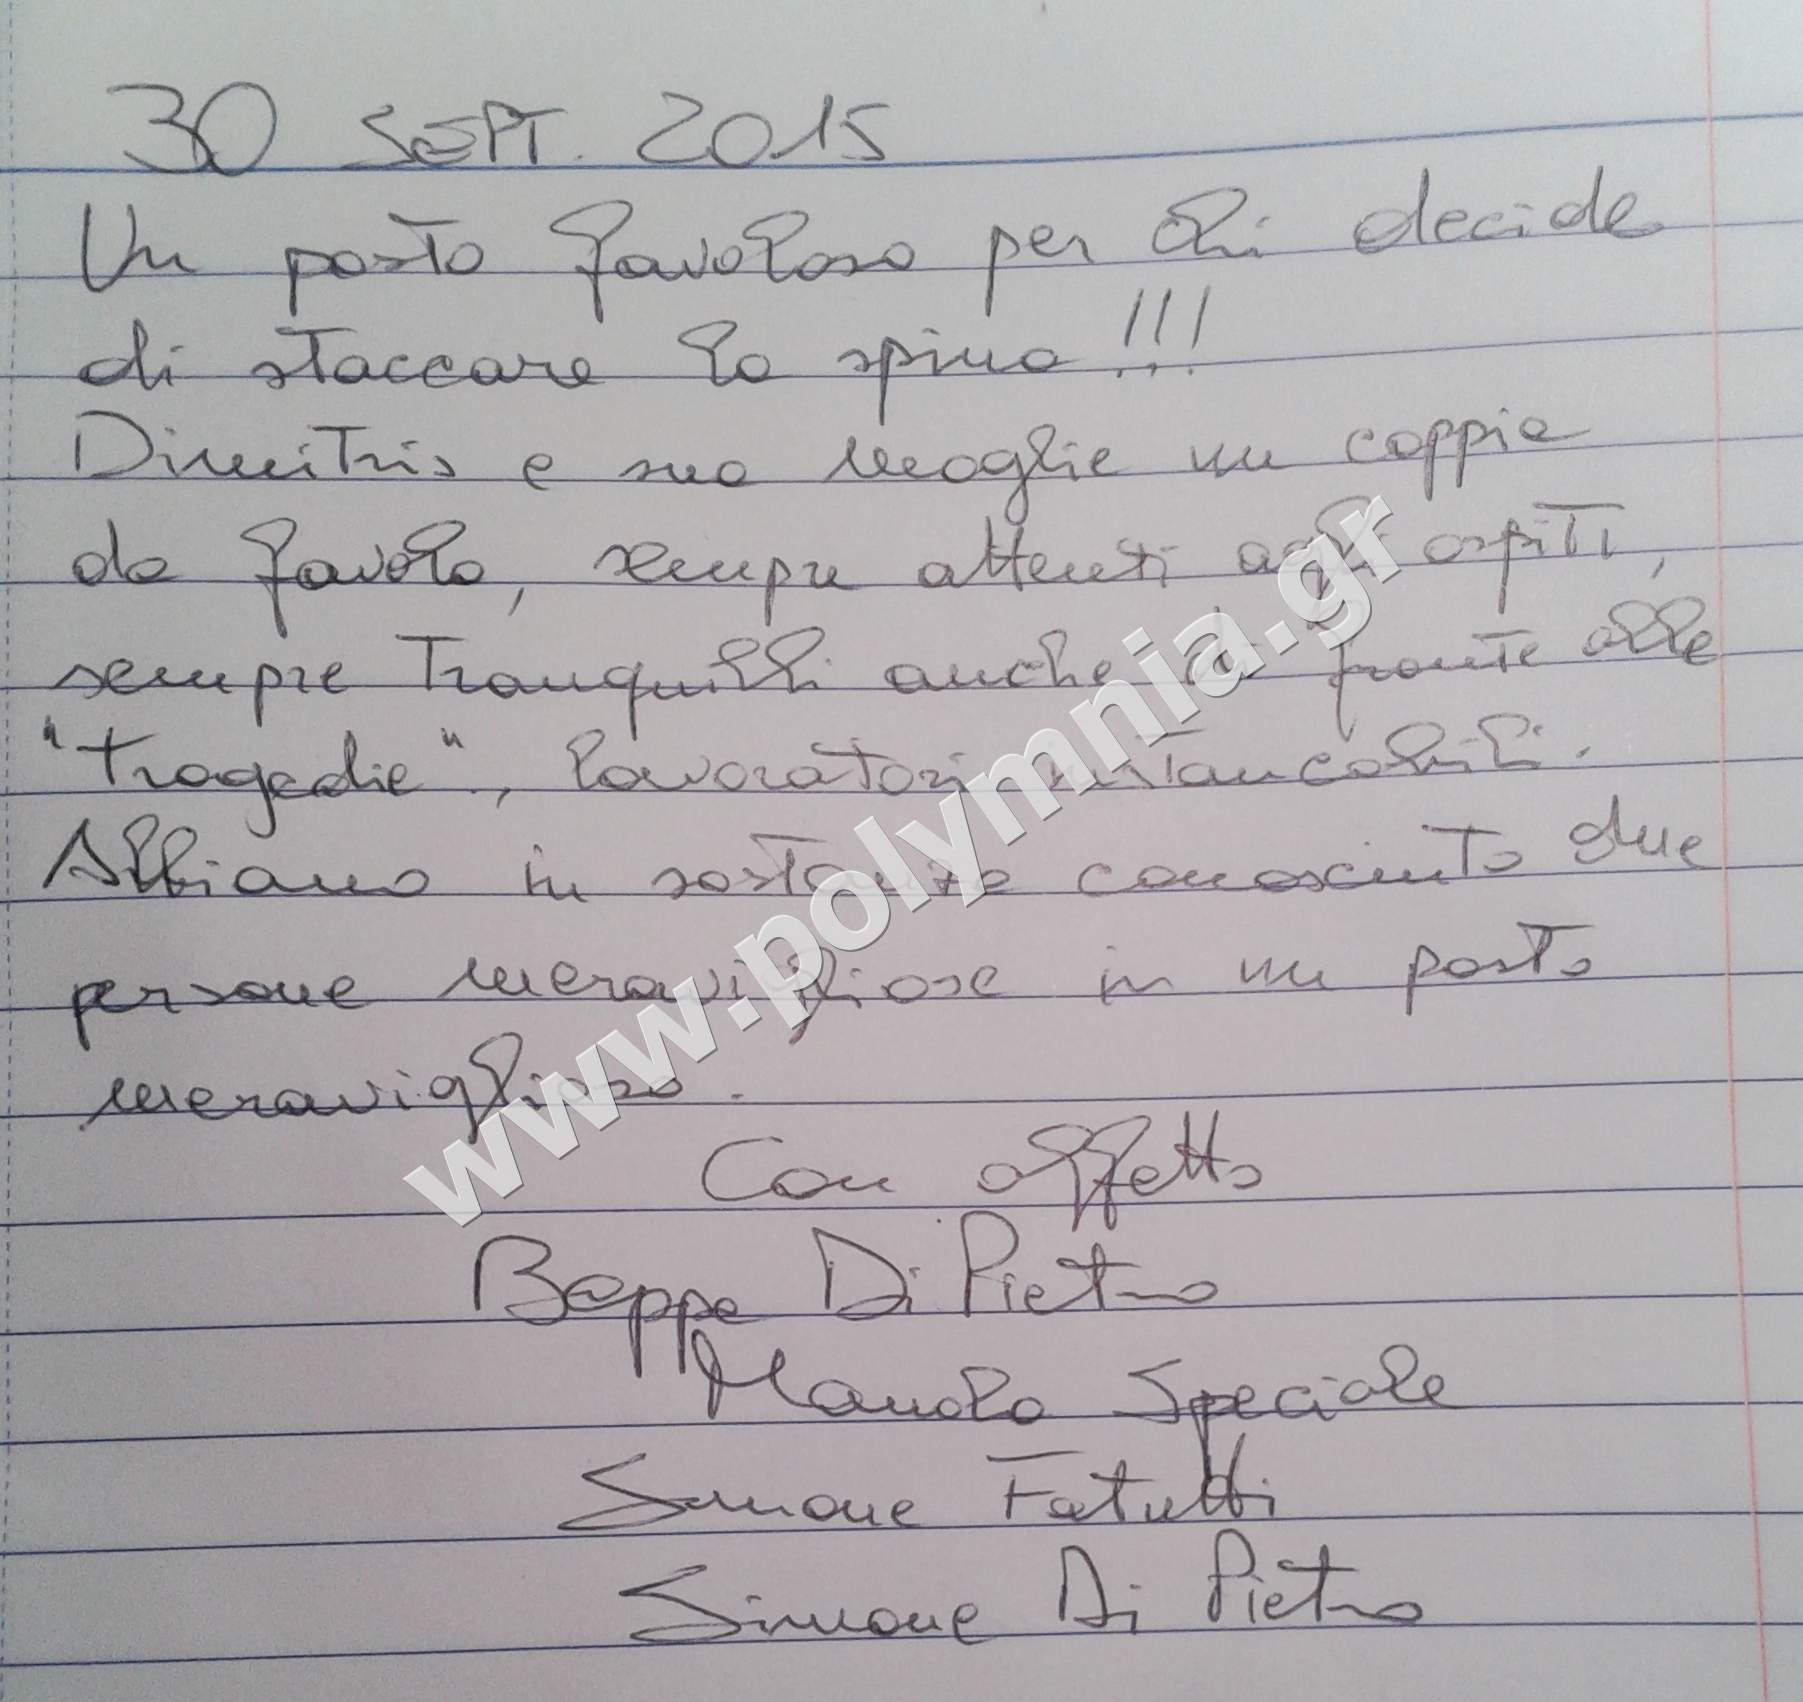 30 SEPT. 2015
Un posto favoloso per chi decide
di staccare la spina!!!
Dimitris e sua moglie un coppia
da favola, sempre attenti agli ospiti,
sempre tranquilli anche di fronte alle
"tragedie", lavoratori instancabili.
Abbiamo in sostanza conosciuto due
persone meravigliose in un posto
meraviglioso.
Con affetto
Beppe Di Pietro
Manola Speciale
Simone Fatutti
Simone Di Pietro
www.polymnia.gr